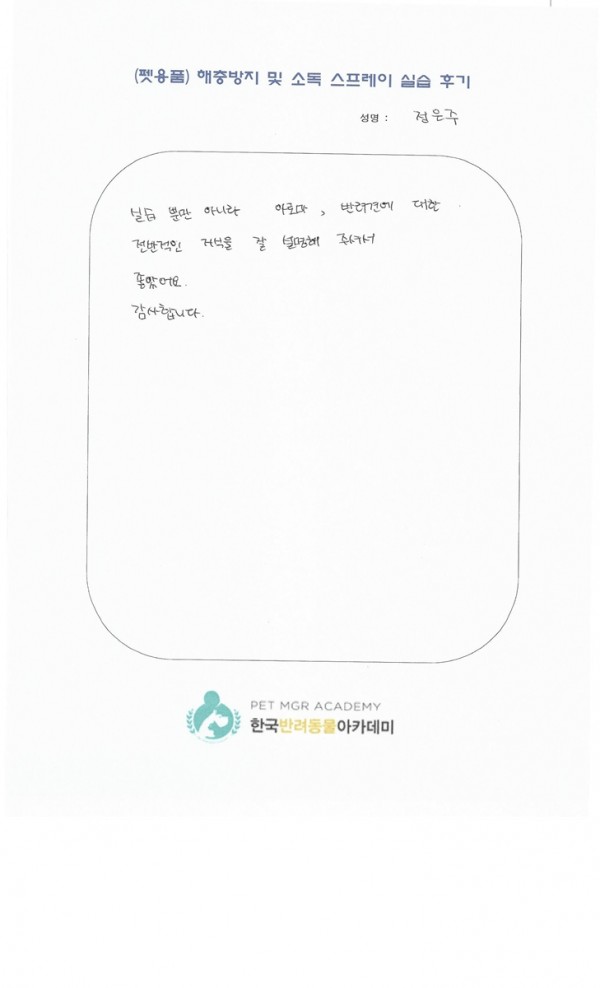 (펫용품) 해충방지 및 소독 스프레이 실습 후기
성명 : 정은주
실습 뿐만 아니라 아로마, 반려견에 대한
전반적인 지식을 잘 설명해 주셔서
좋았어요.
감사합니다.
PET MGR ACADEMY
한국반려동물아카데미